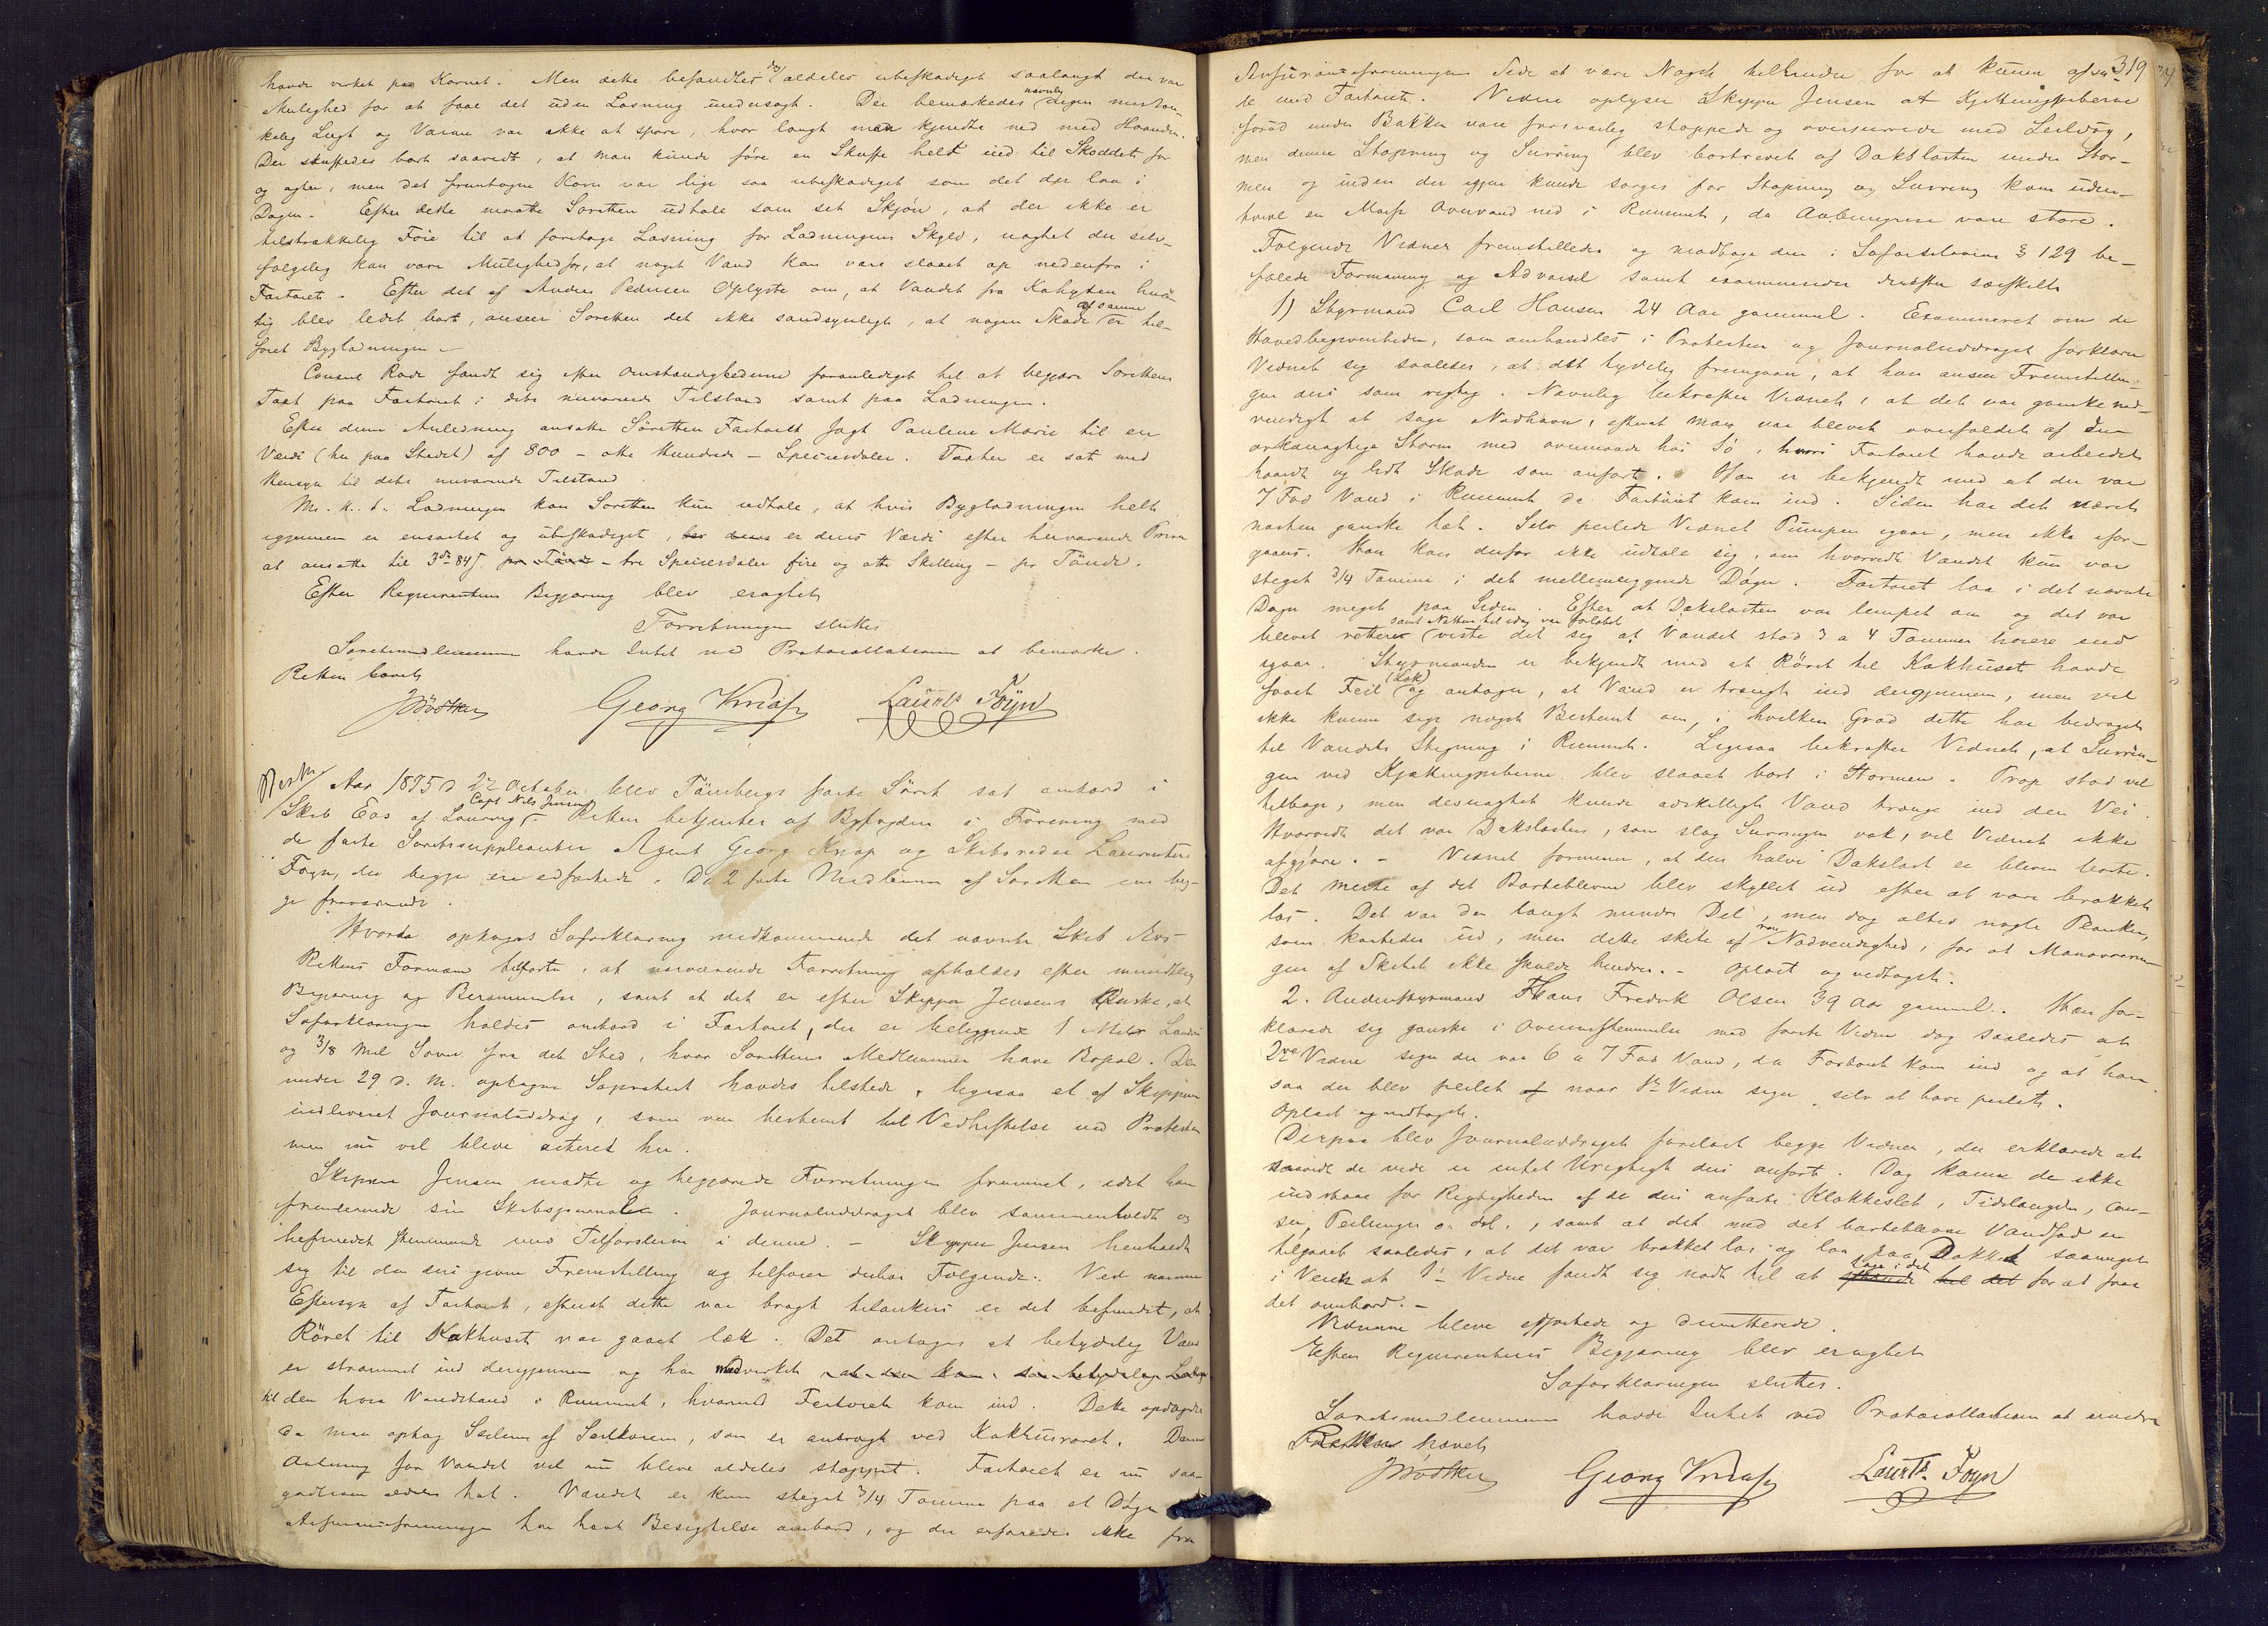 havde virket paa Kornet. Men dette befandtes dog aldeles ubeskadiget saalangt der var
Mulighed for at faae det uden Losning undersøgt. Der bemærkedes navnlig ingen mistæn-
kelig Lugt og Varme var ikke at spore, hvor langt man kjendte ned med Haanden.
Der skuffedes bort saavidt, at man kunde føre en Skuffe helt ind til Skoddet for
og agter, men det fremtagne Korn var lige saa ubeskadiget som det der laa i
Dagen. Efter dette maatte Søretten udtale som sit Skjøn, at der ikke er
tilstrækkelig Føie til at foretage Losning for Ladningens Skyld, uagtet der selv-
følgelig kan være Mulighed for, at noget Vand kan være slaaet op nedenfra i
Fartøiet. Efter det af Anders Pedersen Oplyste om, at Vandet fra Kahyten hur-
tig blev ledet bort, anseer Søretten det ikke sandsynligt, at nogen Skade af samme er til-
føiet Bygladningen.
Consul Rode fandt sig efter Omstændighederne foranlediget til at begjære Sørettens
Taxt paa Fartøiet i dets nuværende Tilstand samt paa Ladningen.
Efter denne Anledning ansatte Søretten Fartøiet Jagt Pauline Marie til en
Værdi (her paa Stedet) af 800 - otte Hundrede - Speciesdaler. Taxten er sat med
Hensyn til dets nuværende Tilstand
M. H. t. Ladningen kan Søretten kun udtale, at hvis Bygladningen helt
igjennem er ensartet og ubeskadiget, er dens Værdi efter herværende Priser
at ansætte til 3 84 pr Tønde - tre Speciesdaler fire og otte Skilling - pr Tønde.
Efter Reqvirentens Begjæring blev eragtet
Forretningen sluttes
Søretsmedlemmerne havde Intet ved Protocollationen at bemærke.
Retten hævet
JBödtker Georg Knap Laurits Föyn
Aar 1875 d 27 October blev Tönsbergs faste Söret sat ombord i
Skib Eos af Laurvig Capt Nils Jensen. Retten betjentes af Byfogden i Forening med
de faste Søretssuppleanter Agent Georg Knap og Skibsreder Laurentius
Føyn, der begge ere edfæstede. De 2 faste Medlemmer af Søretten ere beg-
ge fraværende.
Hvorda optoges Søforklaring vedkommende det nævnte Skib Eos
Rettens Formand tilførte, at nærværende Forretning afholdes efter mundtlig
Begjæring og Berammelse, samt at det er efter Skipper Jensens Ønske, at
Søforklaringen holdes ombord i Fartøiet, der er beliggende 1 Miil Landv.
og 3/8 Mil Søvei fra det Sted, hvor Sørettens Medlemmer have Bopæl. Den
under 29 d. M. optagne Søprotest havdes tilstede, ligesaa et af Skipperen
indleveret Journaluddrag, som var bestemt til Vedheftelse ved Protesten
men nu vil blive acteret her.
Skipper Jensen mødte og begjærede Forretningen fremmet, idet han
fremlevede sin Skibsjournal. Journaluddraget blev sammenholdt og
befundet stemmende med Tilførslerne i denne. - Skipper Jensen henholdt
sig til den deri givne Fremstilling og tilføier derhos Følgende: Ved nærmere
Eftersyn af Fartøiet, efterat dette var bragt tilankers er det befundet, at
Röret til Kokhuset var gaaet læk. Det antages at betydelig Vand
er strømmet ind derigjennem og har medvirket
til den høie Vandstand i Rummet, hvormed Fartøiet kom ind. Dette opdagedes
da man optog Seilene af Seilkoien, som er anbragt ved Kokhusrøret. Denne
Aabning for Vandet vil nu blive aldeles stoppet. Fartøiet er nu saa
godtsom aldeles tæt. Vandet er kun steget 3/4 Tomme paa et Døgn
Assuranceforeningen har havt Besigtelse ombord, og der erfaredes ikke fra
319
Assuranceforeningens Side at være Noget tilhinder for at kunne afse-
le med Fartøiet. Videre oplyser Skipper Jensen at Kjettingpiberne
forud under Bakken vare forsvarlig stoppede og oversurrede med Seildug,
men denne Stopning og Surring blev bortrevet af Dækslasten under Stor-
men og inden der igjen kunde sørges for Stopning og Surring kom uden-
tvivl en Masse Overvand ned i Rummet, da Aabningerne vare store.
Følgende Vidner fremstilledes og modtoge den i Søfartslovens § 129 be-
falede Formaning og Advarsel samt examineredes derefter særskilt
1) Styrmand Carl Hansen 24 Aar gammel. Examineret om de
Hovedbegivenheder, som omhandles i Protesten og Journaluddraget forklarer
Vidnet sig saaledes, at det tydelig fremgaaer, at han anseer Fremstillin-
gen deri som rigtig. Navnlig bekræfter Vidnet, at det var ganske nød-
vendigt at søge Nødhavn, efterat man var blevet overfaldet af den
orkanagtige Storm med overmaade høi Sö, hvori Fartøiet havde arbeidet
haardt og lidt Skade som anført. Han er bekjendt med at der var
7 Fod Vand i Rummet da Fartøiet kom ind. Siden har det været
næsten ganske tæt. Selv peilede Vidnet Pumpen igaar, men ikke ifor-
gaars. Han kan derfor ikke udtale sig, om hvorvidt Vandet kun var
steget 3/4 Tomme i det mellemliggende Døgn. Fartøiet laa i det nævnte
Døgn meget paa Siden. Efter at Dækslasten var lempet om og det var
blevet rettere samt Natten til idag var forløbet viste det sig at Vandet stod 3 a 4 Tommer høiere end
igaar. Styrmanden er bekjendt med at Röret til Kokhuset havde
faaet Feil (Læk) og antager, at Vand er trængt ind derigjennem, men vil
ikke kunne sige noget Bestemt om, i hvilken Grad dette har bidraget
til Vandets Stigning i Rummet. Ligesaa bekræfter Vidnet, at Surrin-
gen ved Kjættingpiberne blev slaaet bort i Stormen. Prop stod vel
tilbage, men desuagtet kunde adskilligt Vand trænge ind den Vei.
Hvorvidt det var Dækslasten, som slog Surringen væk, vil Vidnet ikke
afgjøre. - Vidnet formener, at den halve Dækslast er bleven borte.
Det meste af det Bortblevne blev skyllet ud efter at være brækket
løs. Det var den langt mindre Del, men dog altid nogle Planker,
som kastedes ud, men dette skete af ren Nødvendighed, for at Manøvrerin-
gen af Skibet ikke skulde hindres. - Oplæst og vedtaget.
2. Anden Styrmand Hans Fredrik Olsen 39 Aar gammel. Han for-
klarede sig ganske i Overensstemmelse med første Vidne dog saaledes at
2det Vidne siger der var 6 a 7 Fod Vand, da Fartøiet kom ind og at han
saa der blev peilet naar 1ste Vidne siger selv at have peilet.
Oplæst og vedtaget.
Derpaa blev Journaluddraget forelæst begge Vidner, der erklærede at
saavidt de vide er intet Urigtigt deri anført. Dog kunne de ikke
indestaae for Rigtigheden af de deri anførte Klokkeslet, Tidslængder, Cour-
ser, Peilinger o. dsl., samt at det med det bortblevne Vandfad er
tilgaaet saaledes, at det var brækket løs og laa paa Dækket saameget
i Veien at 1ste Vidne fandt sig nødt til at for at faae
det ombord. -
Vidnerne bleve edfæstede og dimitterede.
Efter Reqvirentens Begjæring blev eragtet
Søforklaringen sluttes.
Søretsmedlemmerne havde Intet ved Protocollationen at erindre
Retten hævet
JBödtker Georg Knap Laurits Föyn